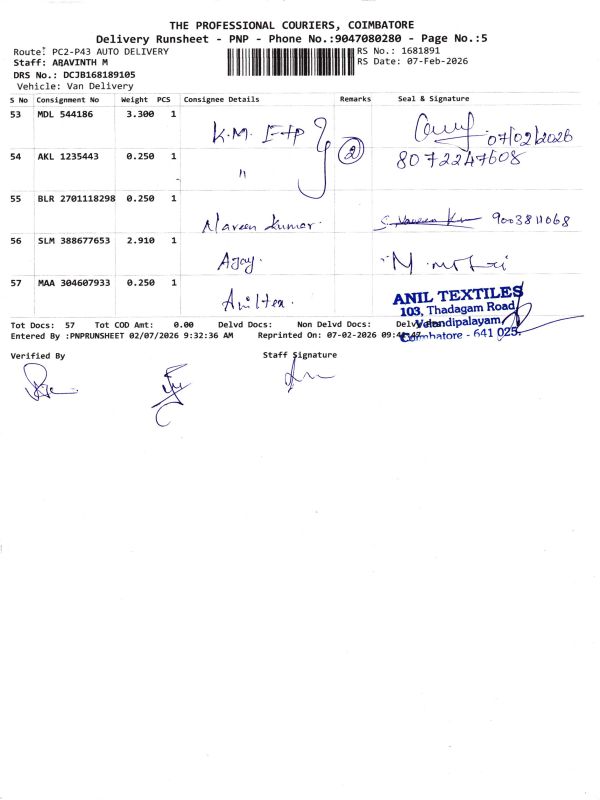 THE PROFESSIONAL COURIERS, COIMBATORE
Delivery Runsheet - PNP - Phone No.:9047080280 - Page No.:5
Route: PC2-P43 AUTO DELIVERY
RS No.: 1681891
Staff: ARAVINTH M
RS Date: 07-Feb-2026
DRS No.: DCJB168189105
Vehicle: Van Delivery
S No Consignment No Weight PCS Consignee Details Remarks Seal & Signature
53 MDL 544186 3.300 1 K.M. 07/02/2026
54 AKL 1235443 0.250 1 " 2 8072247608
55 BLR 2701118298 0.250 1 Naveen kumar. 9003811068
56 SLM 388677653 2.910 1 Ajay.
57 MAA 304607933 0.250 1 Aniltex.
ANIL TEXTILES
103, Thadagam Road
Velandipalayam,
Coimbatore - 641 025.
Tot Docs: 57 Tot COD Amt: 0.00 Delvd Docs: Non Delvd Docs:
Entered By :PNPRUNSHEET 02/07/2026 9:32:36 AM Reprinted On: 07-02-2026
Verified By
Staff Signature